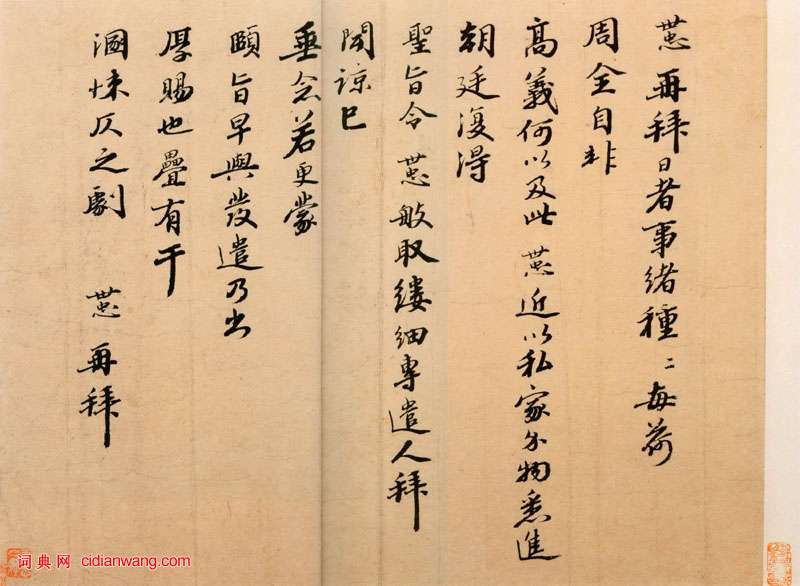 世忠再拜日者事緒種〻每荷
周全自非
高義何以及此世忠近以私家分物悉進
朝廷復得
聖旨令世忠取縷細專遣人拜
聞諒已
垂念若更蒙
頤旨早與發遣乃出
厚賜也疊有干
溷悚仄之劇 世忠再拜
词典网 cidianwang.com